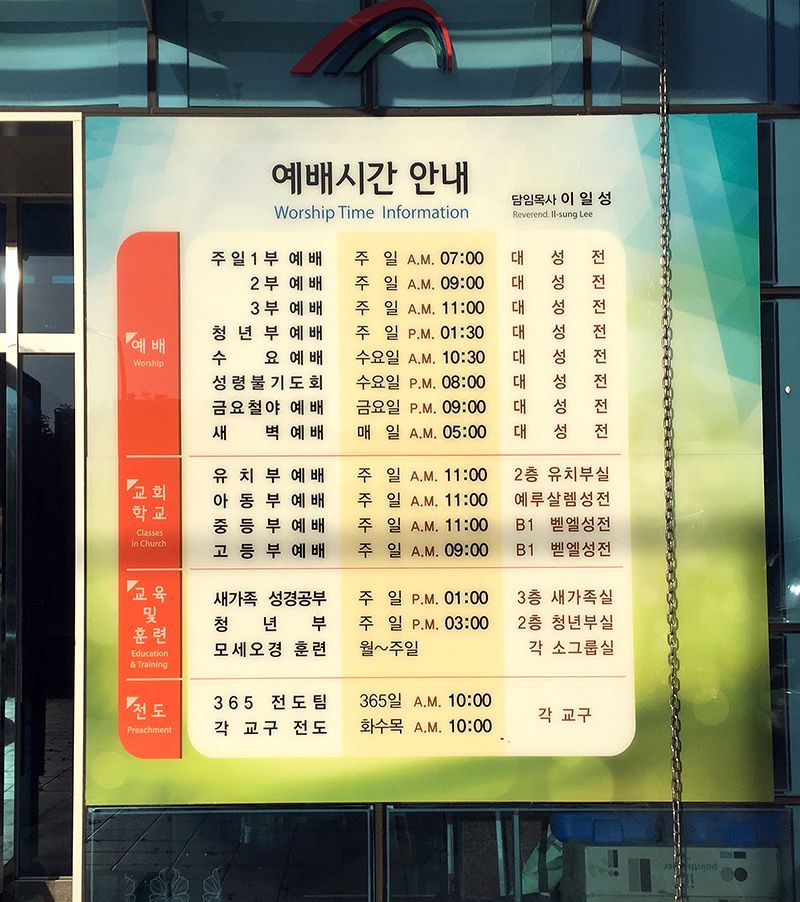 예배시간 안내
Worship Time Information
담임목사 이일성
Reverend. Il-sung Lee
예배
Worship
주일1부 예배 주일 A.M. 07:00 대성전
2부 예배 주일 A.M. 09:00 대성전
3부 예배 주일 A.M. 11:00 대성전
청년부예배 주일 P.M. 01:30 대성전
수요예배 수요일 A.M. 10:30 대성전
성령불기도회 수요일 P.M. 08:00 대성전
금요철야 예배 금요일 P.M. 09:00 대성전
새벽예배 매일 A.M. 05:00 대성전
교회
학교
Classes
in Church
유치부예배 주일 A.M. 11:00 2층 유치부실
아동부예배 주일 A.M. 11:00 예루살렘성전
중등부예배 주일 A.M. 11:00 B1 벧엘성전
고등부예배 주일 A.M. 09:00 B1 벧엘성전
교육
및
훈련
Education
& Training
새가족 성경공부 주일 P.M. 01:00 3층 새가족실
청년부 주일 P.M. 03:00 2층 청년부실
모세오경 훈련 월~주일 각 소그룹실
전도
Preachment
365 전도팀 365일 A.M. 10:00
각 교구 전도 화수목 A.M. 10:00
각 교구